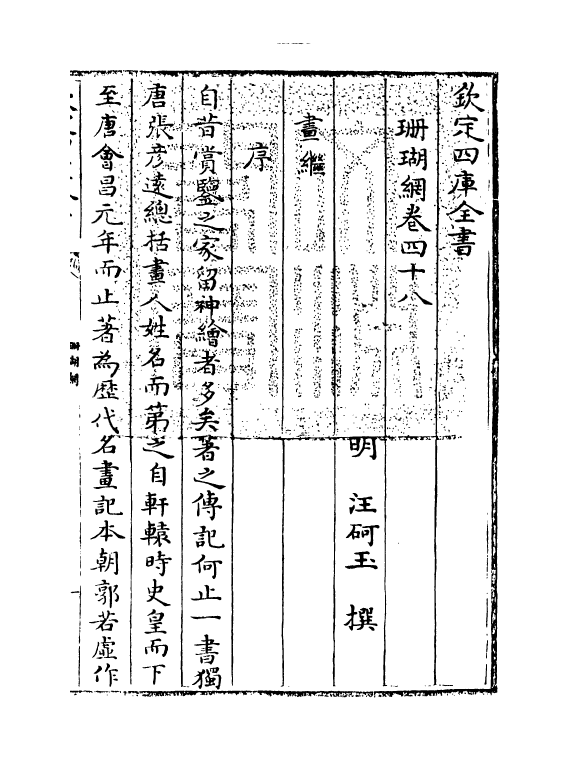 欽定四庫全書
珊瑚網卷四十八
明 汪砢玉 撰
畫繼
序
自昔賞鑒之家留神繪者多矣著之傳記何止一書獨
唐張彦逺總括畫人姓名而第之自軒轅時史皇而下
至唐會昌元年而止著為歴代名畫記本朝郭若虛作
珊瑚網